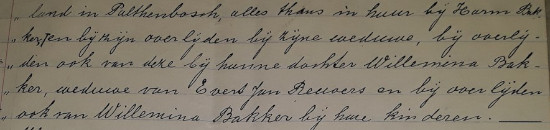 „ land in Palthenbosch, alles thans in huur bij Harm Bak-
„ ker, en bij zijn overlijden bij zijne weduwe, bij overlij-
„ den ook van deze bij hunne dochter Willemina Bak-
„ ker, weduwe van Evert Jan Reuvers en bij overlijden
„ ook van Willemina Bakker bij hare kinderen. —